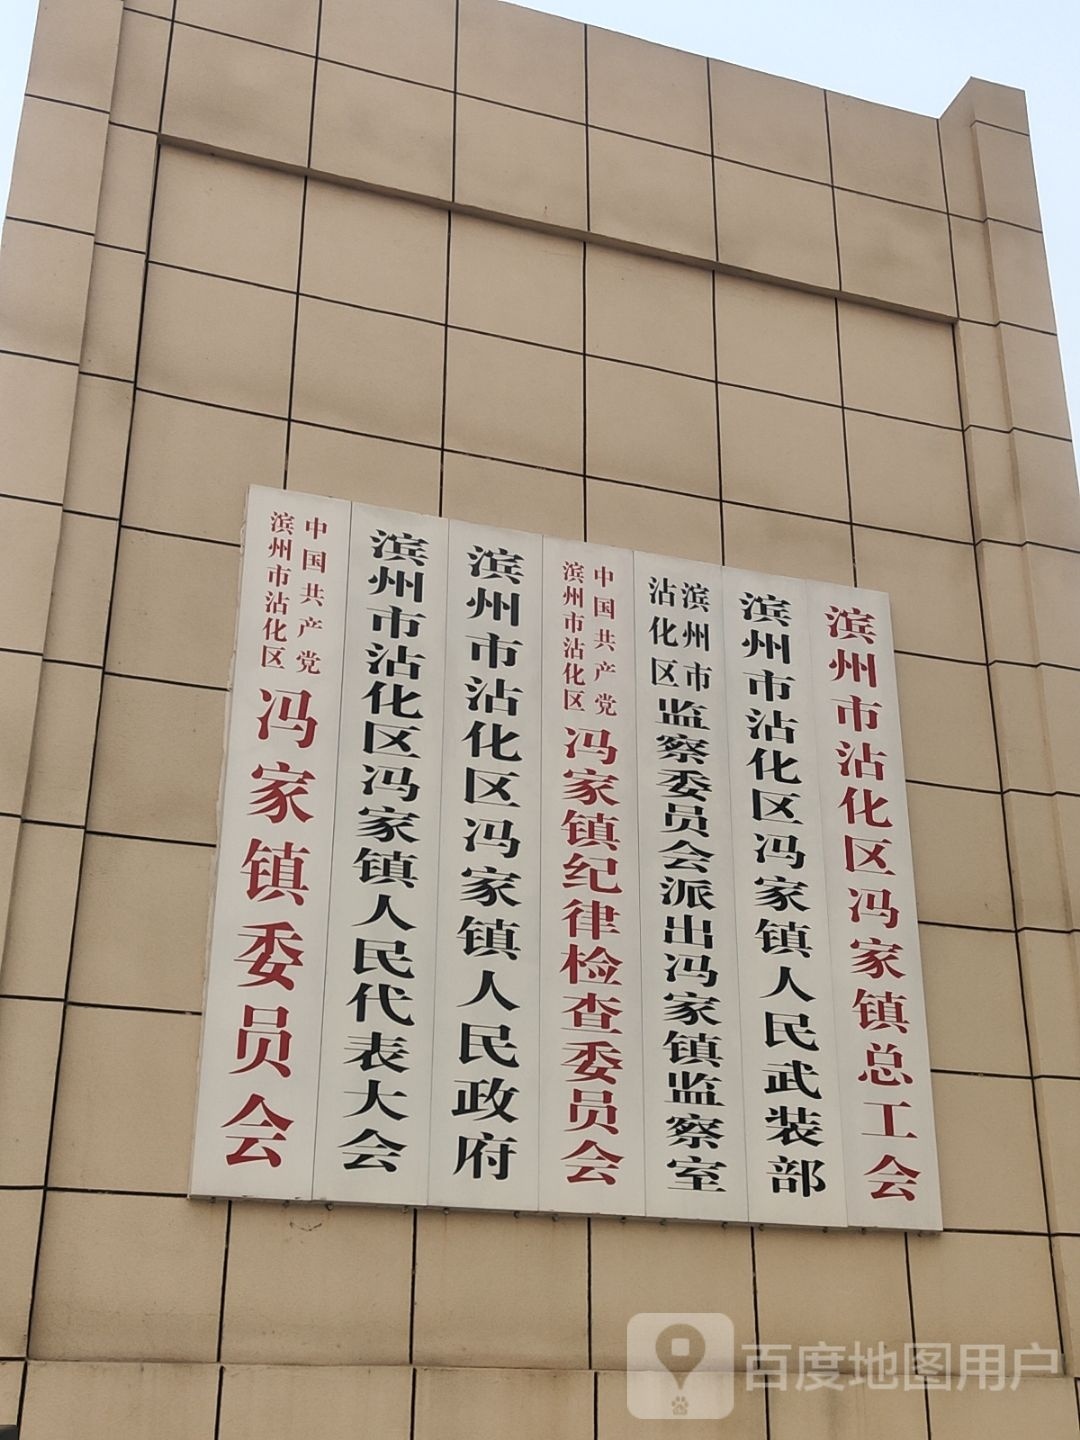 中国共产党
滨州市沾化区
冯家镇委员会
滨州市沾化区冯家镇人民代表大会
滨州市沾化区冯家镇人民政府
中国共产党
滨州市沾化区
冯家镇纪律检查委员会
滨州市
沾化区
监察委员会派出冯家镇监察室
滨州市沾化区冯家镇人民武装部
滨州市沾化区冯家镇总工会
百度地图用户